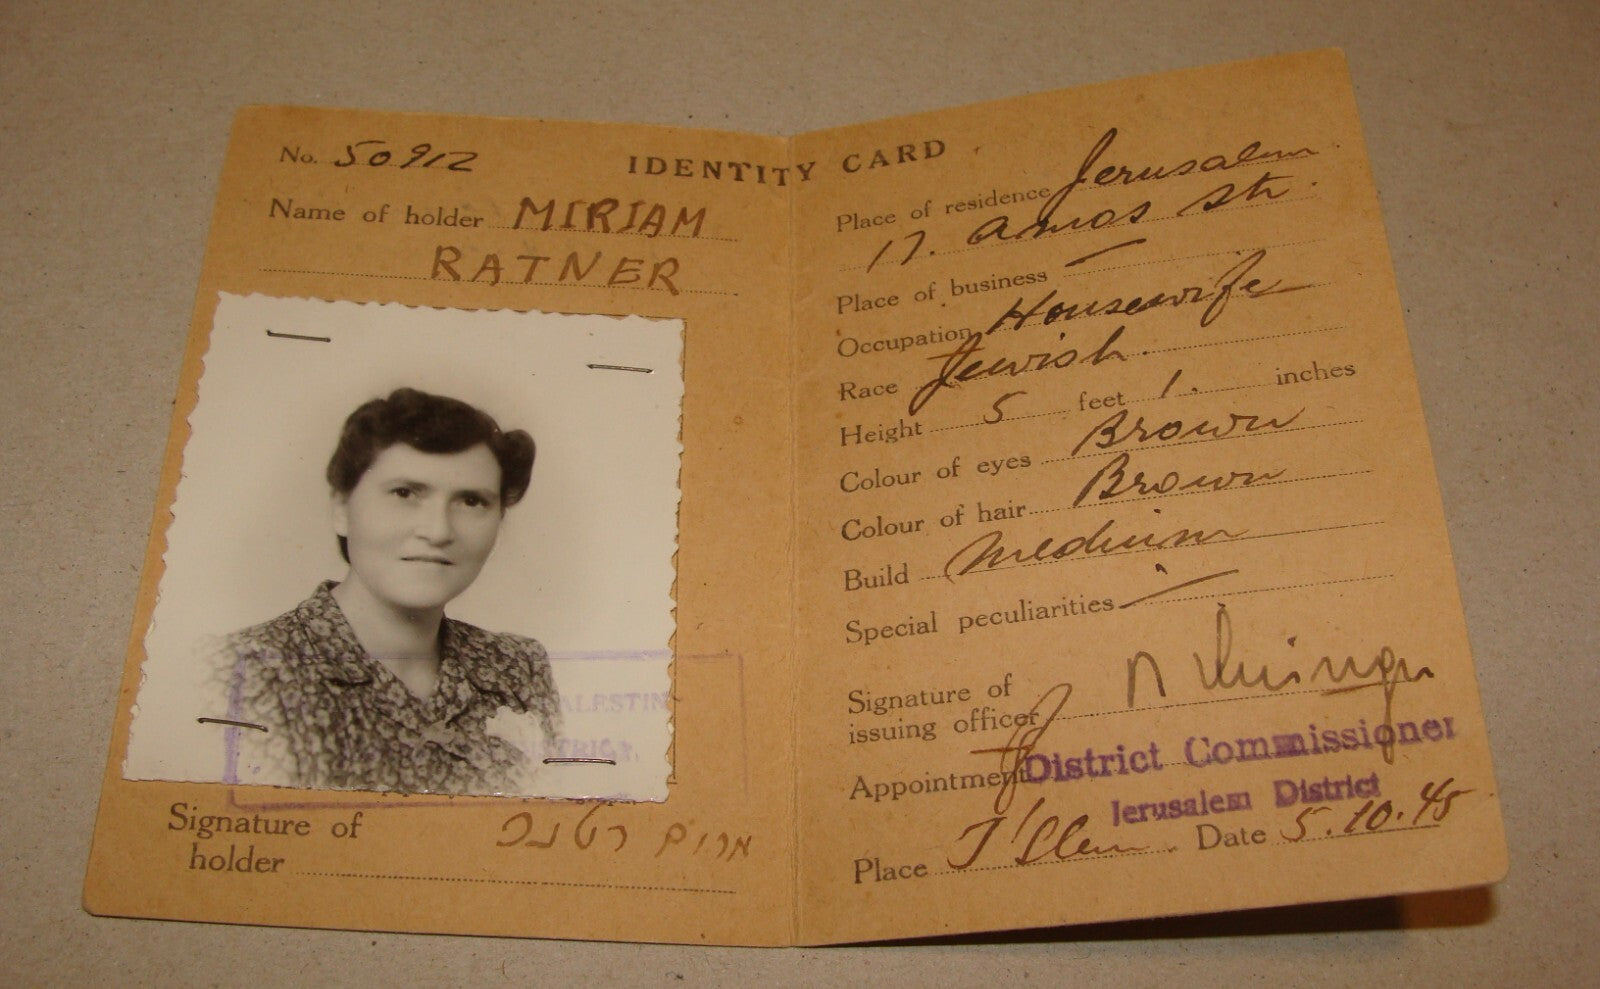 No. 50912
IDENTITY CARD
Name of holder MIRIAM
RATNER
ALESTIN
STRICT.
Signature of
holder מרים רטנר
Place of residence Jerusalem
17. Amos Str.
Place of business —
Occupation Housewife
Race Jewish.
Height 5 feet 1. inches
Colour of eyes Brown
Colour of hair Brown
Build Medium
Special peculiarities —
Signature of
issuing officer
Appointment District Commissioner
Jerusalem District
Place J'slem. Date 5.10.45